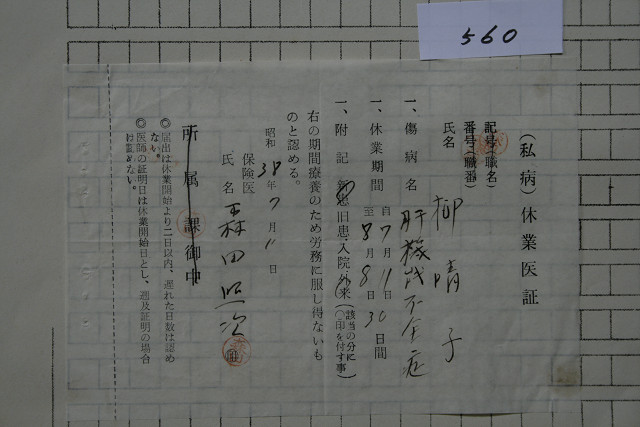 560
(私病)休業医証
記号(職名)
番号(職番)
氏名 柳晴子
一、傷病名 肝機能不全症
一、休業期間 自7月11日 至8月8日 30日間
一、附記 新患旧患入院外来(該当の分に○印を付す事)
右の期間療養のため労務に服し得ないも
のと認める。
昭和38年7月11日
保険医
氏名 森田照次
所属課御中
◎届出は休業開始より二日以内、遅れた日数は認め
ない。
◎医師の証明日は休業開始日とし、遡及証明の場合
は認めない。